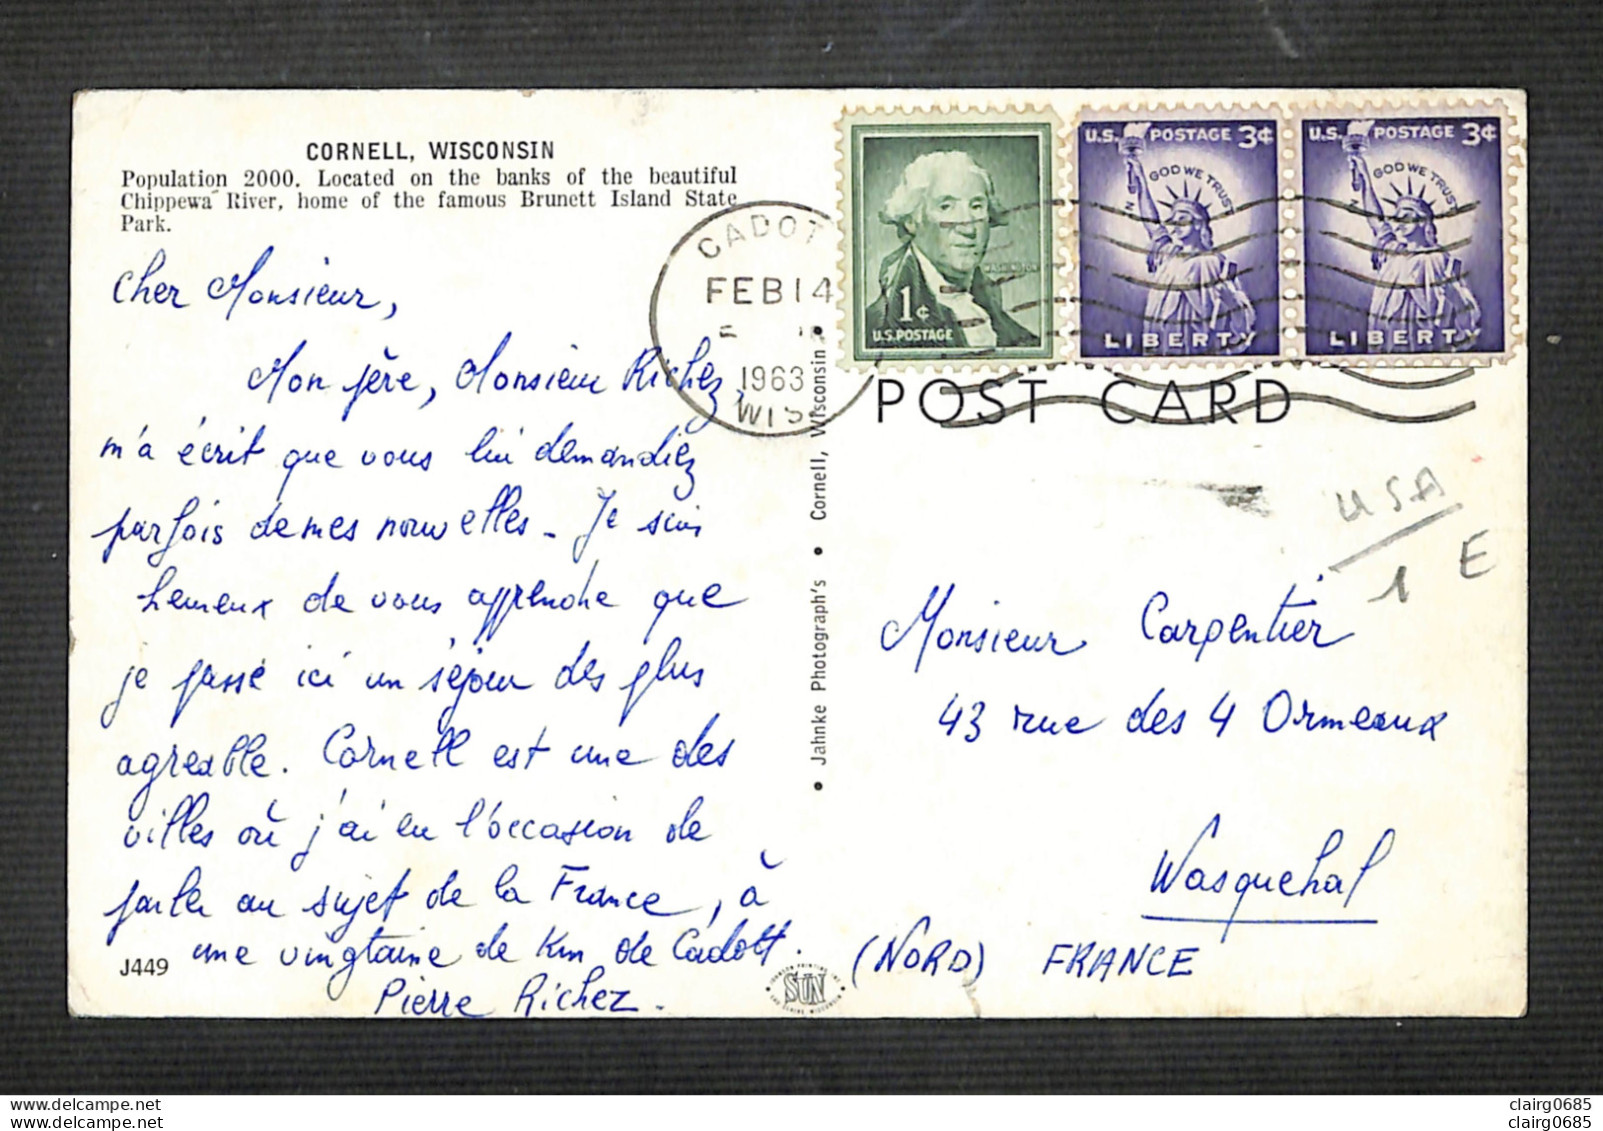 CORNELL, WISCONSIN
Population 2000. Located on the banks of the beautiful
Chippewa River, home of the famous Brunett Island State
Park.
Cher Monsieur,
Mon père, Monsieur Richez,
m'a écrit que vous lui demandiez
parfois de mes nouvelles - Je suis
heureux de vous apprendre que
je passe ici un séjour des plus
agreable. Cornell est une des
villes où j'ai eu l'occasion de
parler au sujet de la France, à
une vingtaine de Km de Cadott.
Pierre Richez.
J449
CADOT
FEB 14
1963
WIS
WASHINGTON
1¢
U.S. POSTAGE
U.S. POSTAGE 3¢
IN GOD WE TRUST
LIBERTY
U.S. POSTAGE 3¢
IN GOD WE TRUST
LIBERTY
POST CARD
• Jahnke Photograph's • Cornell, Wisconsin •
USA
1 E
Monsieur Carpentier
43 rue des 4 Ormeaux
Wasquehal
(NORD) FRANCE
SUN
delcampe.net
delcampe.net
clairg0685
clairg0685